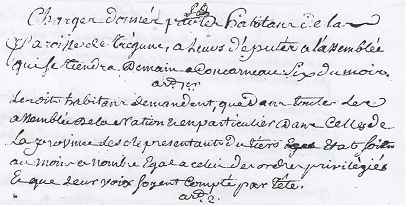 Charges donnés par les habitans de la
paroisse de Trégunc, a leurs députés a l'assemblée
qui se tiendra demain a Concarneau six du mois.
art. 1er
Lesdits habitans demandent, que dans toutes les
assemblées de la Nation & en particulier dans celles de
la province les representants du tiers Etat soient
au moins en nombre egal a celui des ordres privilégiés
& que leur voix soyent compté par tête.
art. 2